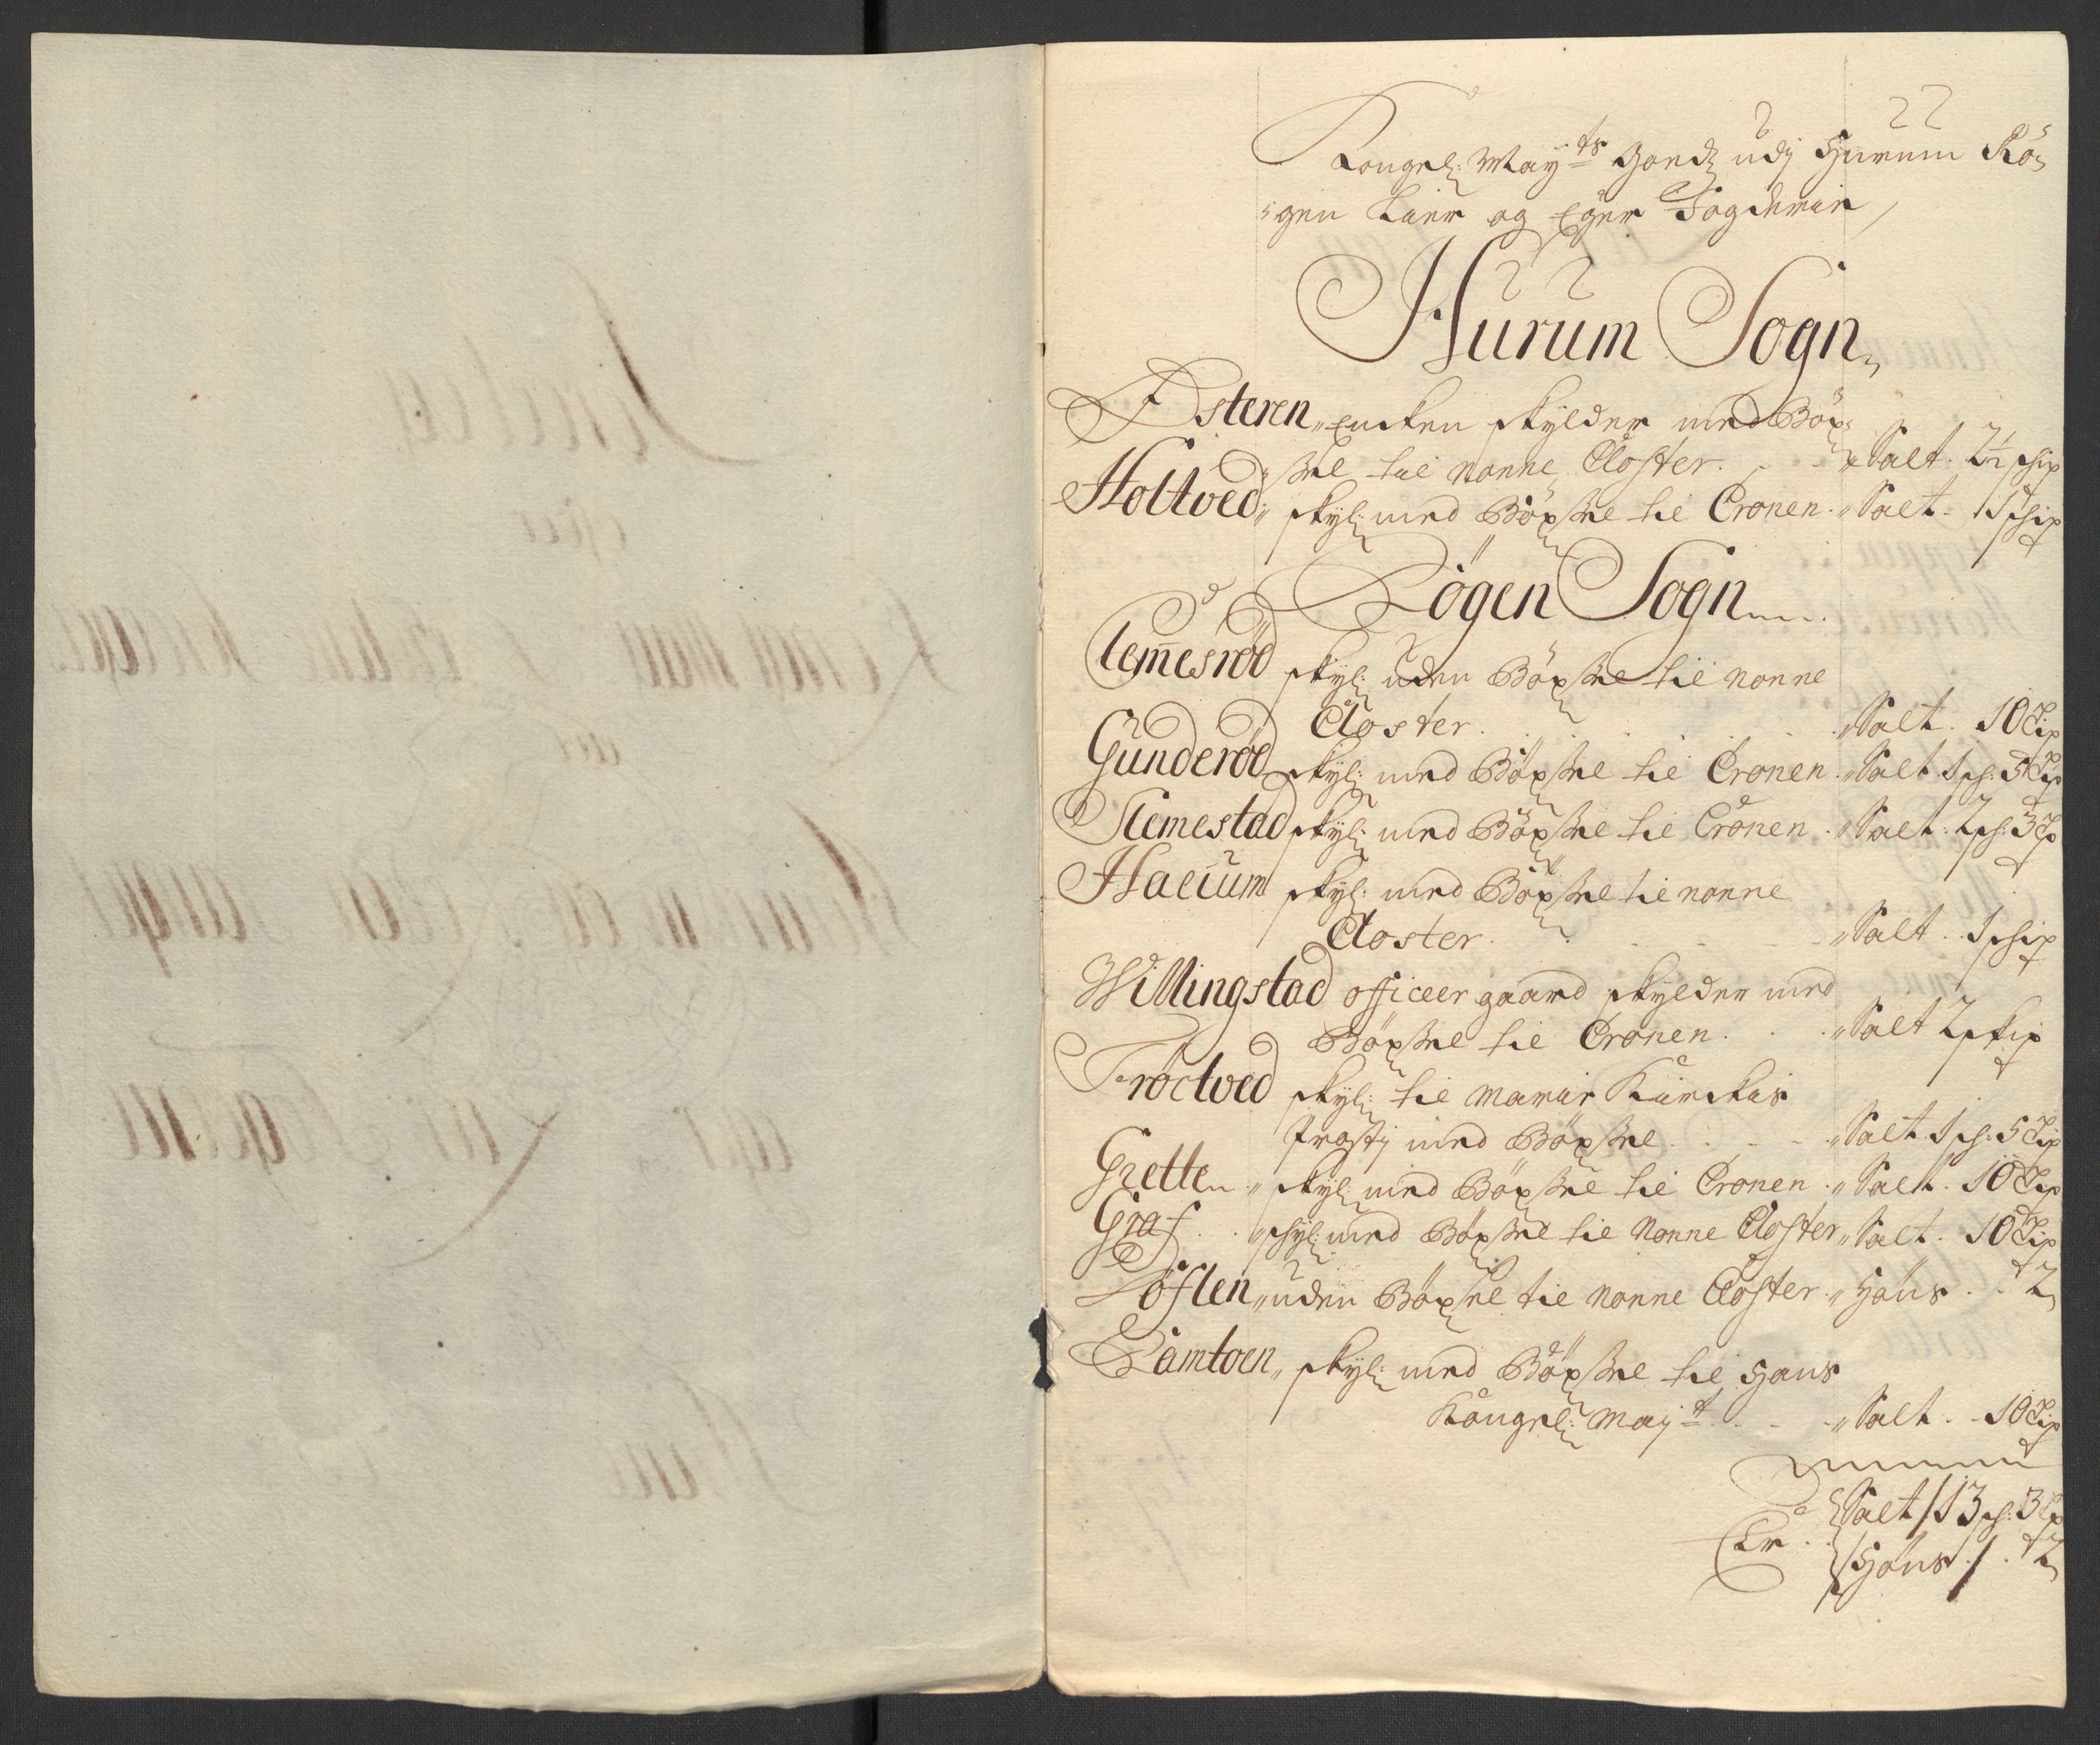 Kongel: May:ts Gods udj Hurum Rø-
gen Lier og Eger Fogderie
Hurum Sogn
Østeren, Encken skylder med Bøx-
sel til Nonne Closter. Salt 2½ schip
Holtved, skyl: med Bøxsel til Cronen. Salt 1 schip
Røgen Sogn
Clemmesrød skyl: uden Bøxsel til Nonne
Closter. Salt. 10 Lip
Gunderød skyl: med Bøxsel til Cronen. Salt 1 sch: 5 Lip
Slemestad skyl: med Bøxsel til Cronen. Salt. 2 sch: 3 Lp
Hallum skyl: med Bøxsel til Nonne
Closter. Salt. 1 schip
Willingstad officeer gaard skylder med
Bøxsel til Cronen. Salt 2 skip
Frøctved skyl: til Mariæ Kirckes
Prostj med Bøxsel. Salt 1 sch: 5 Lip
Grette, skyl: med Bøxsel til Cronen. Salt. 10 Lip
Graf. schyl: med Bøxsel til Nonne Closter, Salt. 10 Lip
Tøflen, uden Bøxsel til Nonne Closter. Høns. 2
Ramtoen, skyl: med Bøxsel til Hans
Kongel: May:t Salt. 10 Lip
Er. Salt / 13 sch: 3 Lp
Høns / . 2